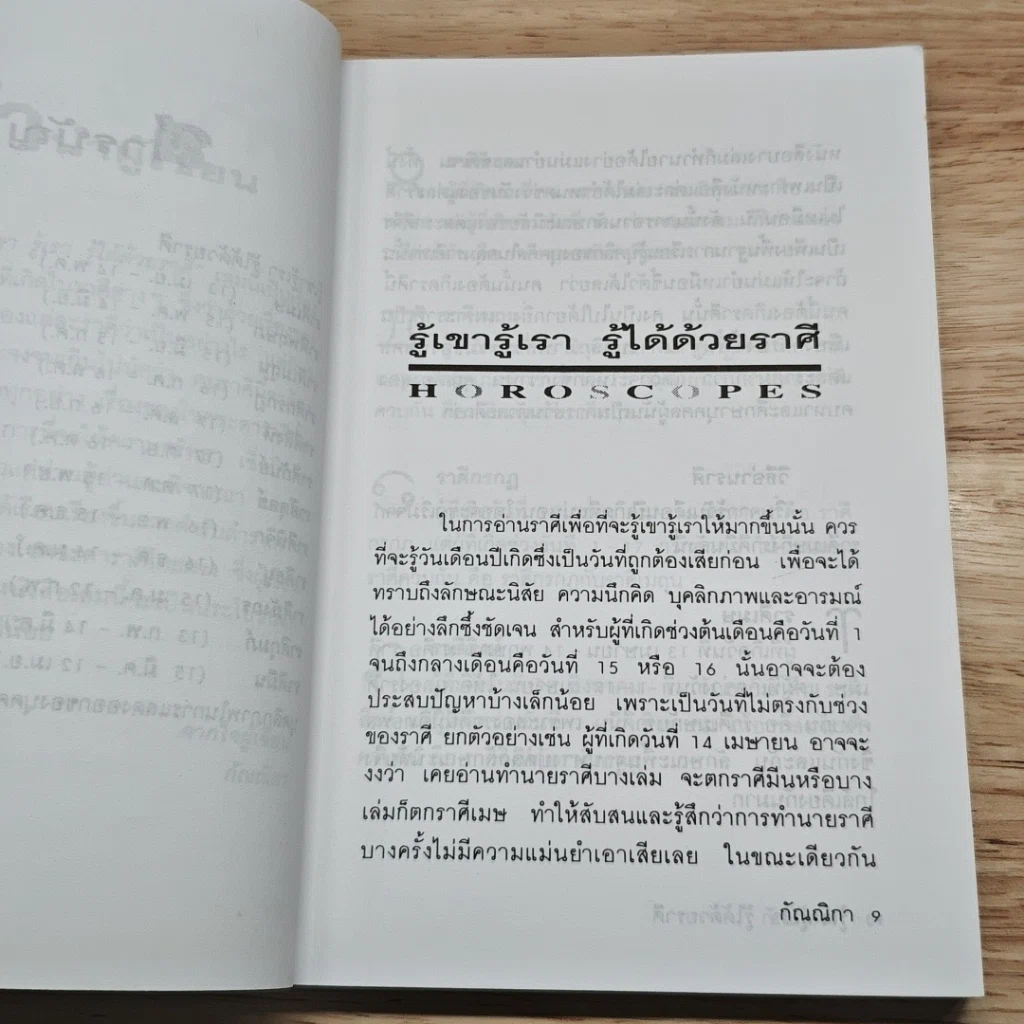 รู้เขารู้เรา รู้ได้ด้วยราศี
HOROSCOPES
ในการอ่านราศีเพื่อที่จะรู้เขารู้เราให้มากขึ้นนั้น ควร
ที่จะรู้วันเดือนปีเกิดซึ่งเป็นวันที่ถูกต้องเสียก่อน เพื่อจะได้
ทราบถึงลักษณะนิสัย ความนึกคิด บุคลิกภาพและอารมณ์
ได้อย่างลึกซึ้งชัดเจน สำหรับผู้ที่เกิดช่วงต้นเดือนคือวันที่ 1
จนถึงกลางเดือนคือวันที่ 15 หรือ 16 นั้นอาจจะต้อง
ประสบปัญหาบ้างเล็กน้อย เพราะเป็นวันที่ไม่ตรงกับช่วง
ของราศี ยกตัวอย่างเช่น ผู้ที่เกิดวันที่ 14 เมษายน อาจจะ
งงว่า เคยอ่านทำนายราศีบางเล่ม จะตกราศีมีนหรือบาง
เล่มก็ตกราศีเมษ ทำให้สับสนและรู้สึกว่าการทำนายราศี
บางครั้งไม่มีความแม่นยำเอาเสียเลย ในขณะเดียวกัน
กัณณิกา 9